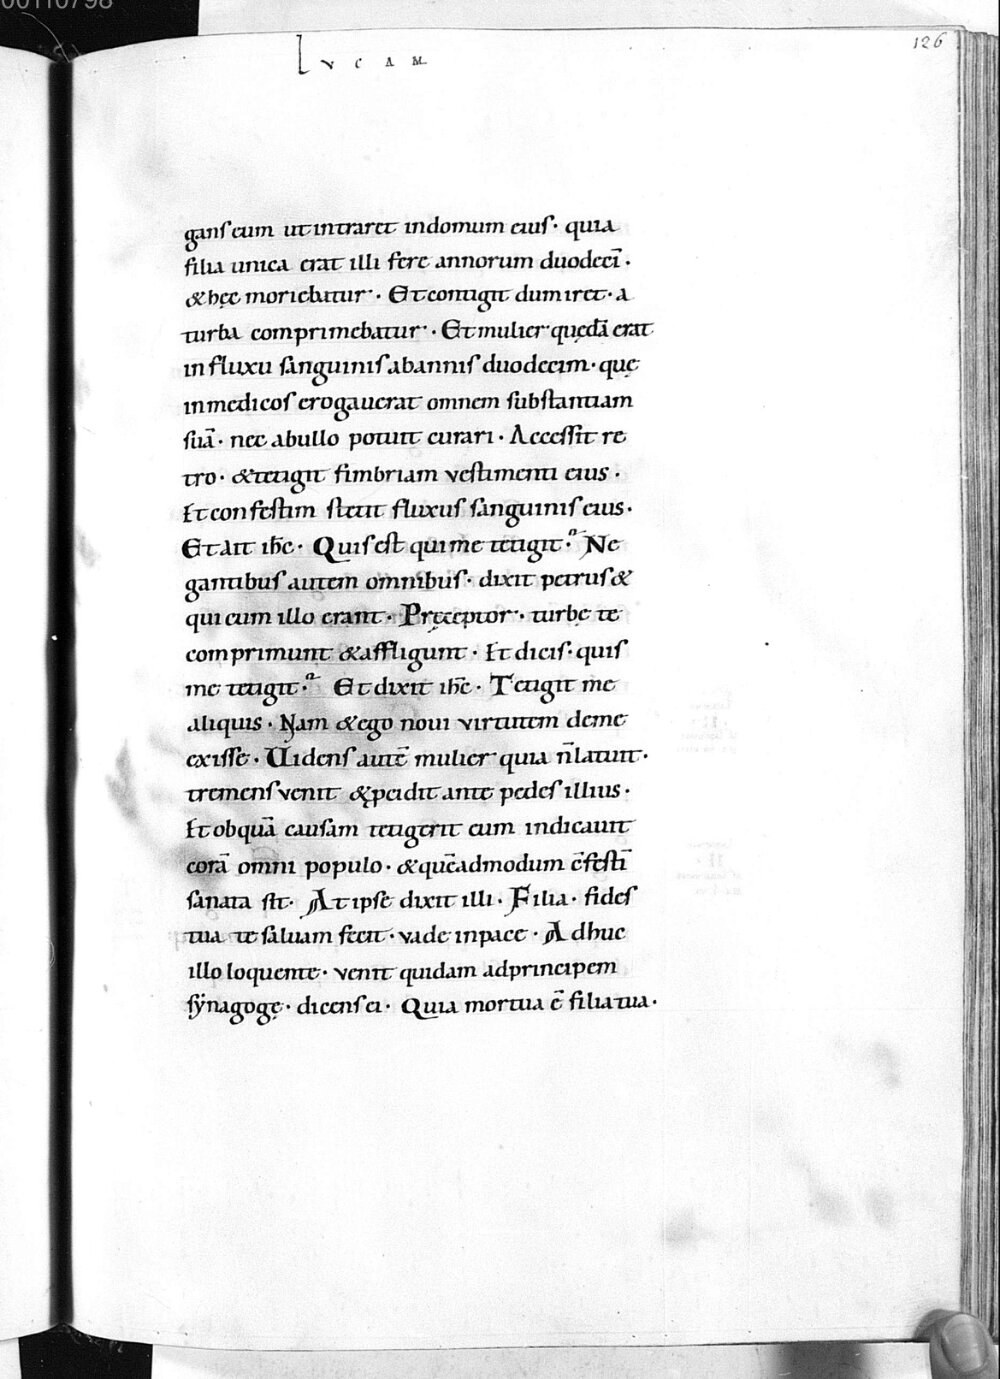 00110798
LVCAM
126
ganſ eum ut intraret indomum eiuſ· quia
filia unica erat illi fere annorum duodecī·
& hęc moriebatur· Et contigit dum iret· a
turba comprimebatur· Et mulier quędā erat
in fluxu ſanguiniſ ab anniſ duodecim· quę
in medicoſ erogauerat omnem ſubſtantiam
ſuā· nec abullo potuit curari· Acceſſit re
tro· & tetigit fimbriam veſtimenti eius·
Et confeſtim ſtetit fluxuſ ſanguiniſ eius·
Et ait ihc̄· Quiſ eſt qui me tetigit? Ne
gantibuſ autem omnibuſ· dixit petruſ &
qui cum illo erant· Pręceptor· turbę te
comprimunt & affligunt· Et dicis· quiſ
me tetigit? Et dixit ihc̄· Tetigit me
aliquis· Nam & ego noui virtutem de me
exiſſe· Uidenſ autē mulier quia n̄ latuit·
tremenſ venit & ꝓcidit ante pedeſ illius·
Et ob quā cauſam tetigerit eum indicauit
corā omni populo· & quēadmodum c̄feſtī
ſanata ſit· At ipſe dixit illi· Filia· fideſ
tua te ſaluam fecit· vade inpace· Adhuc
illo loquente· venit quidam adprincipem
ſẏnagogę· dicenſ ei· Quia mortua ē filia tua·